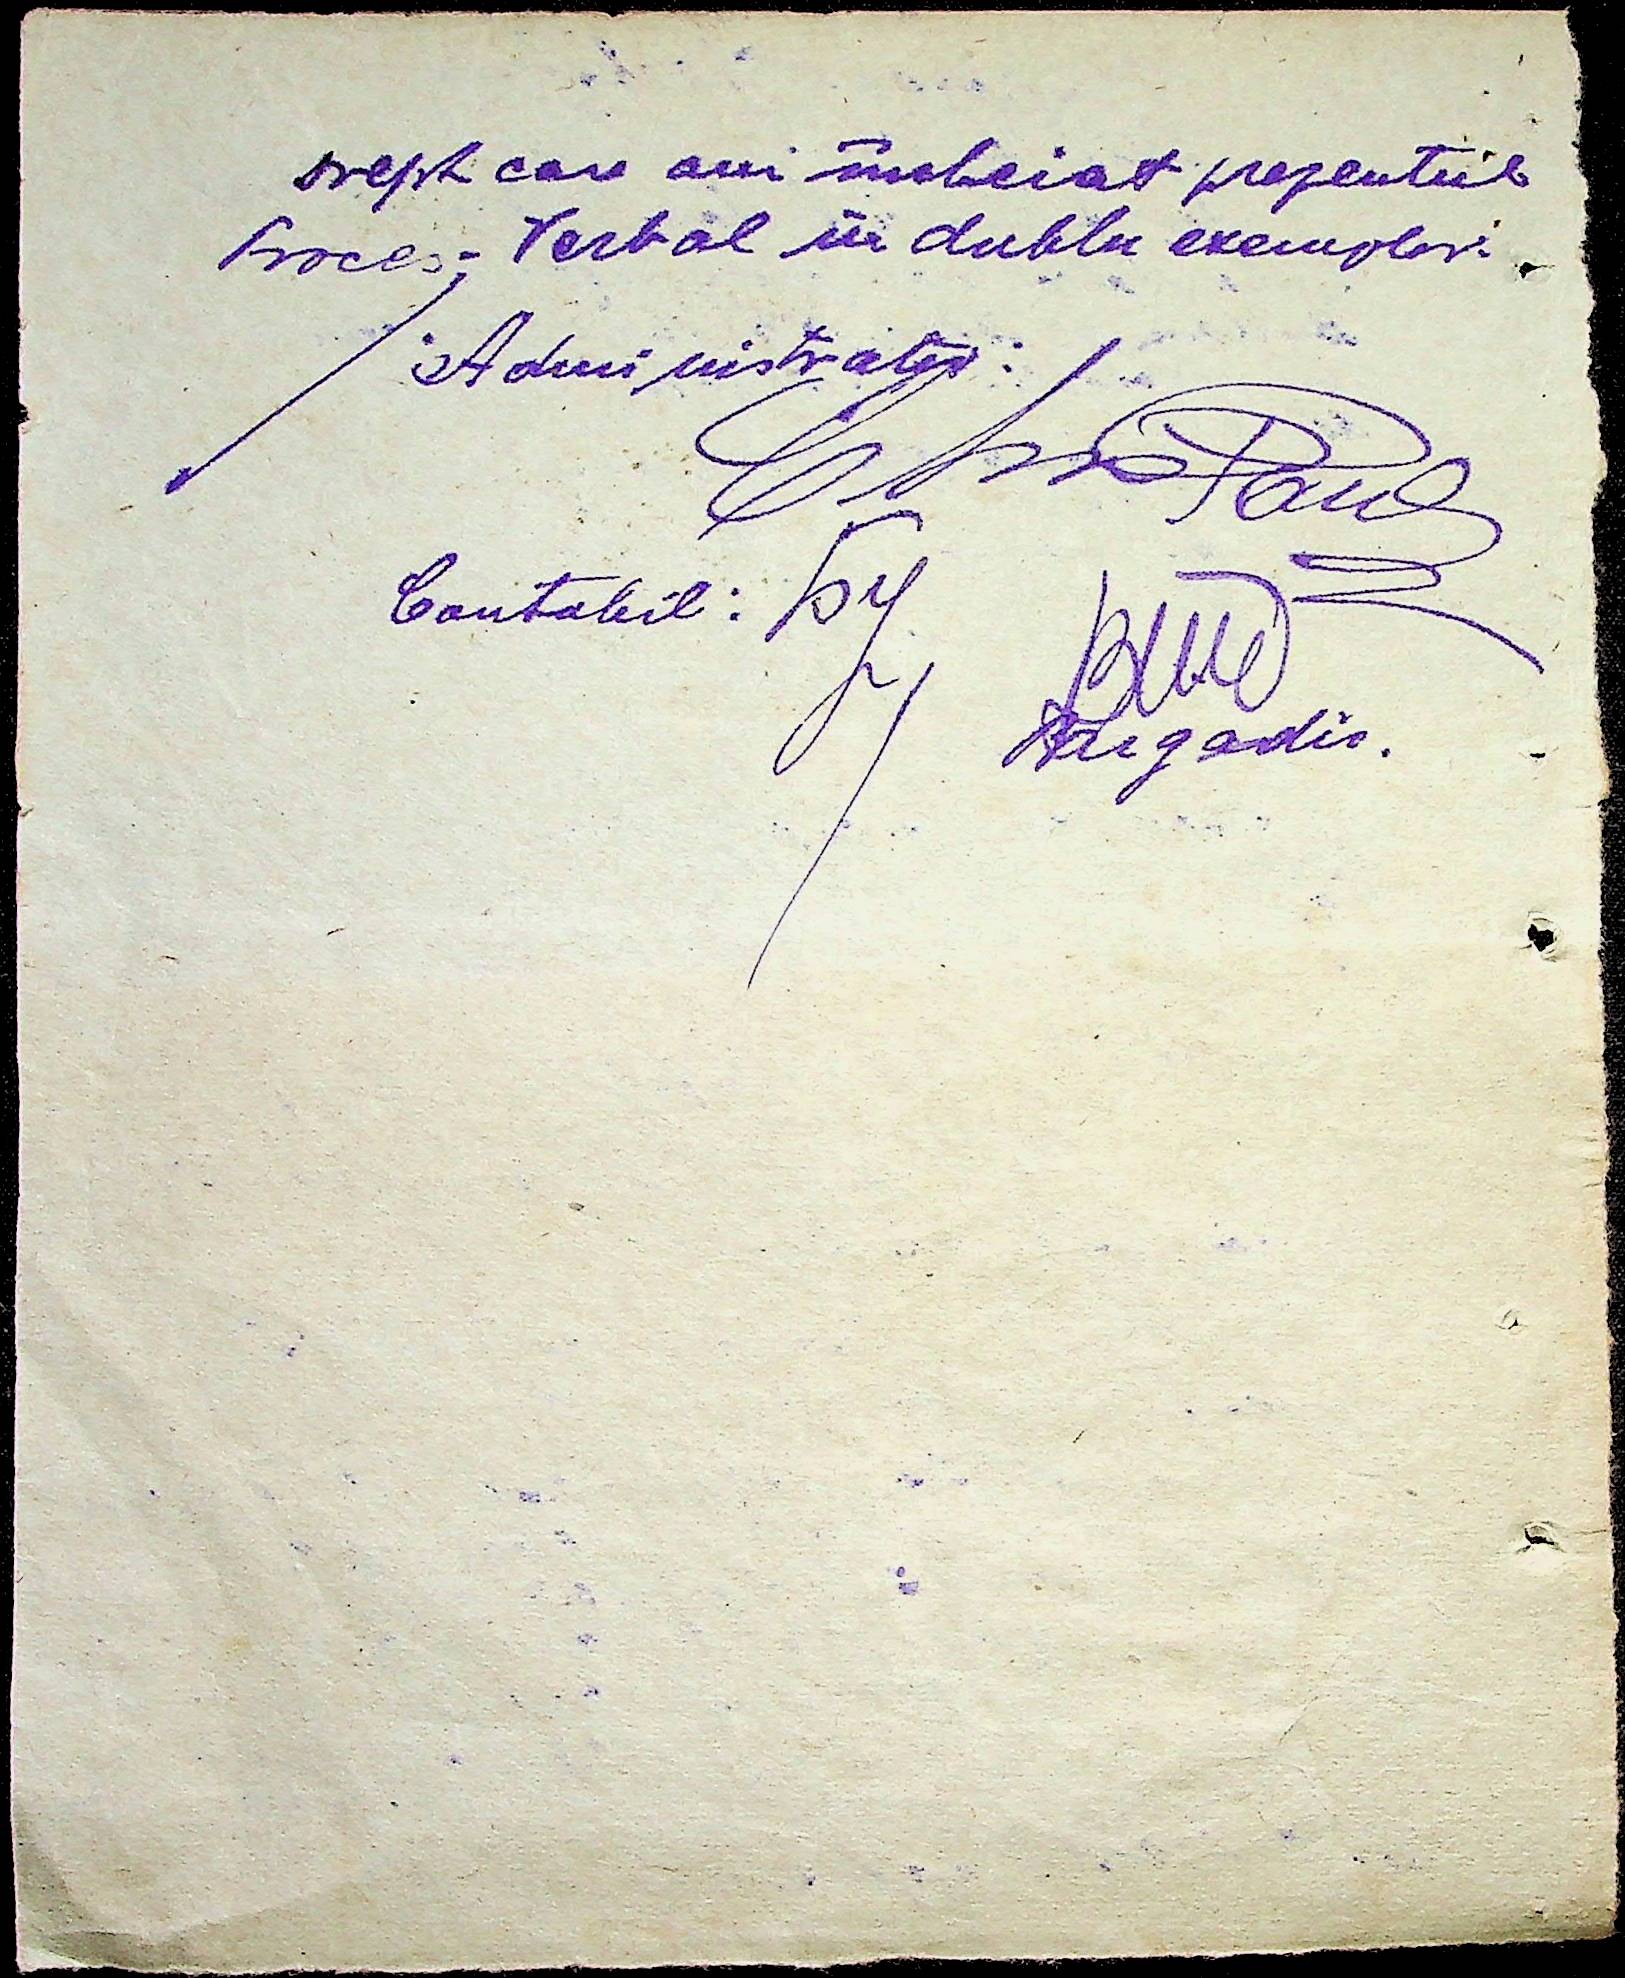 drept care am încheiat prezentul
Proces-Verbal în dublu exemplar.
Administrator:
Paul
Contabil: